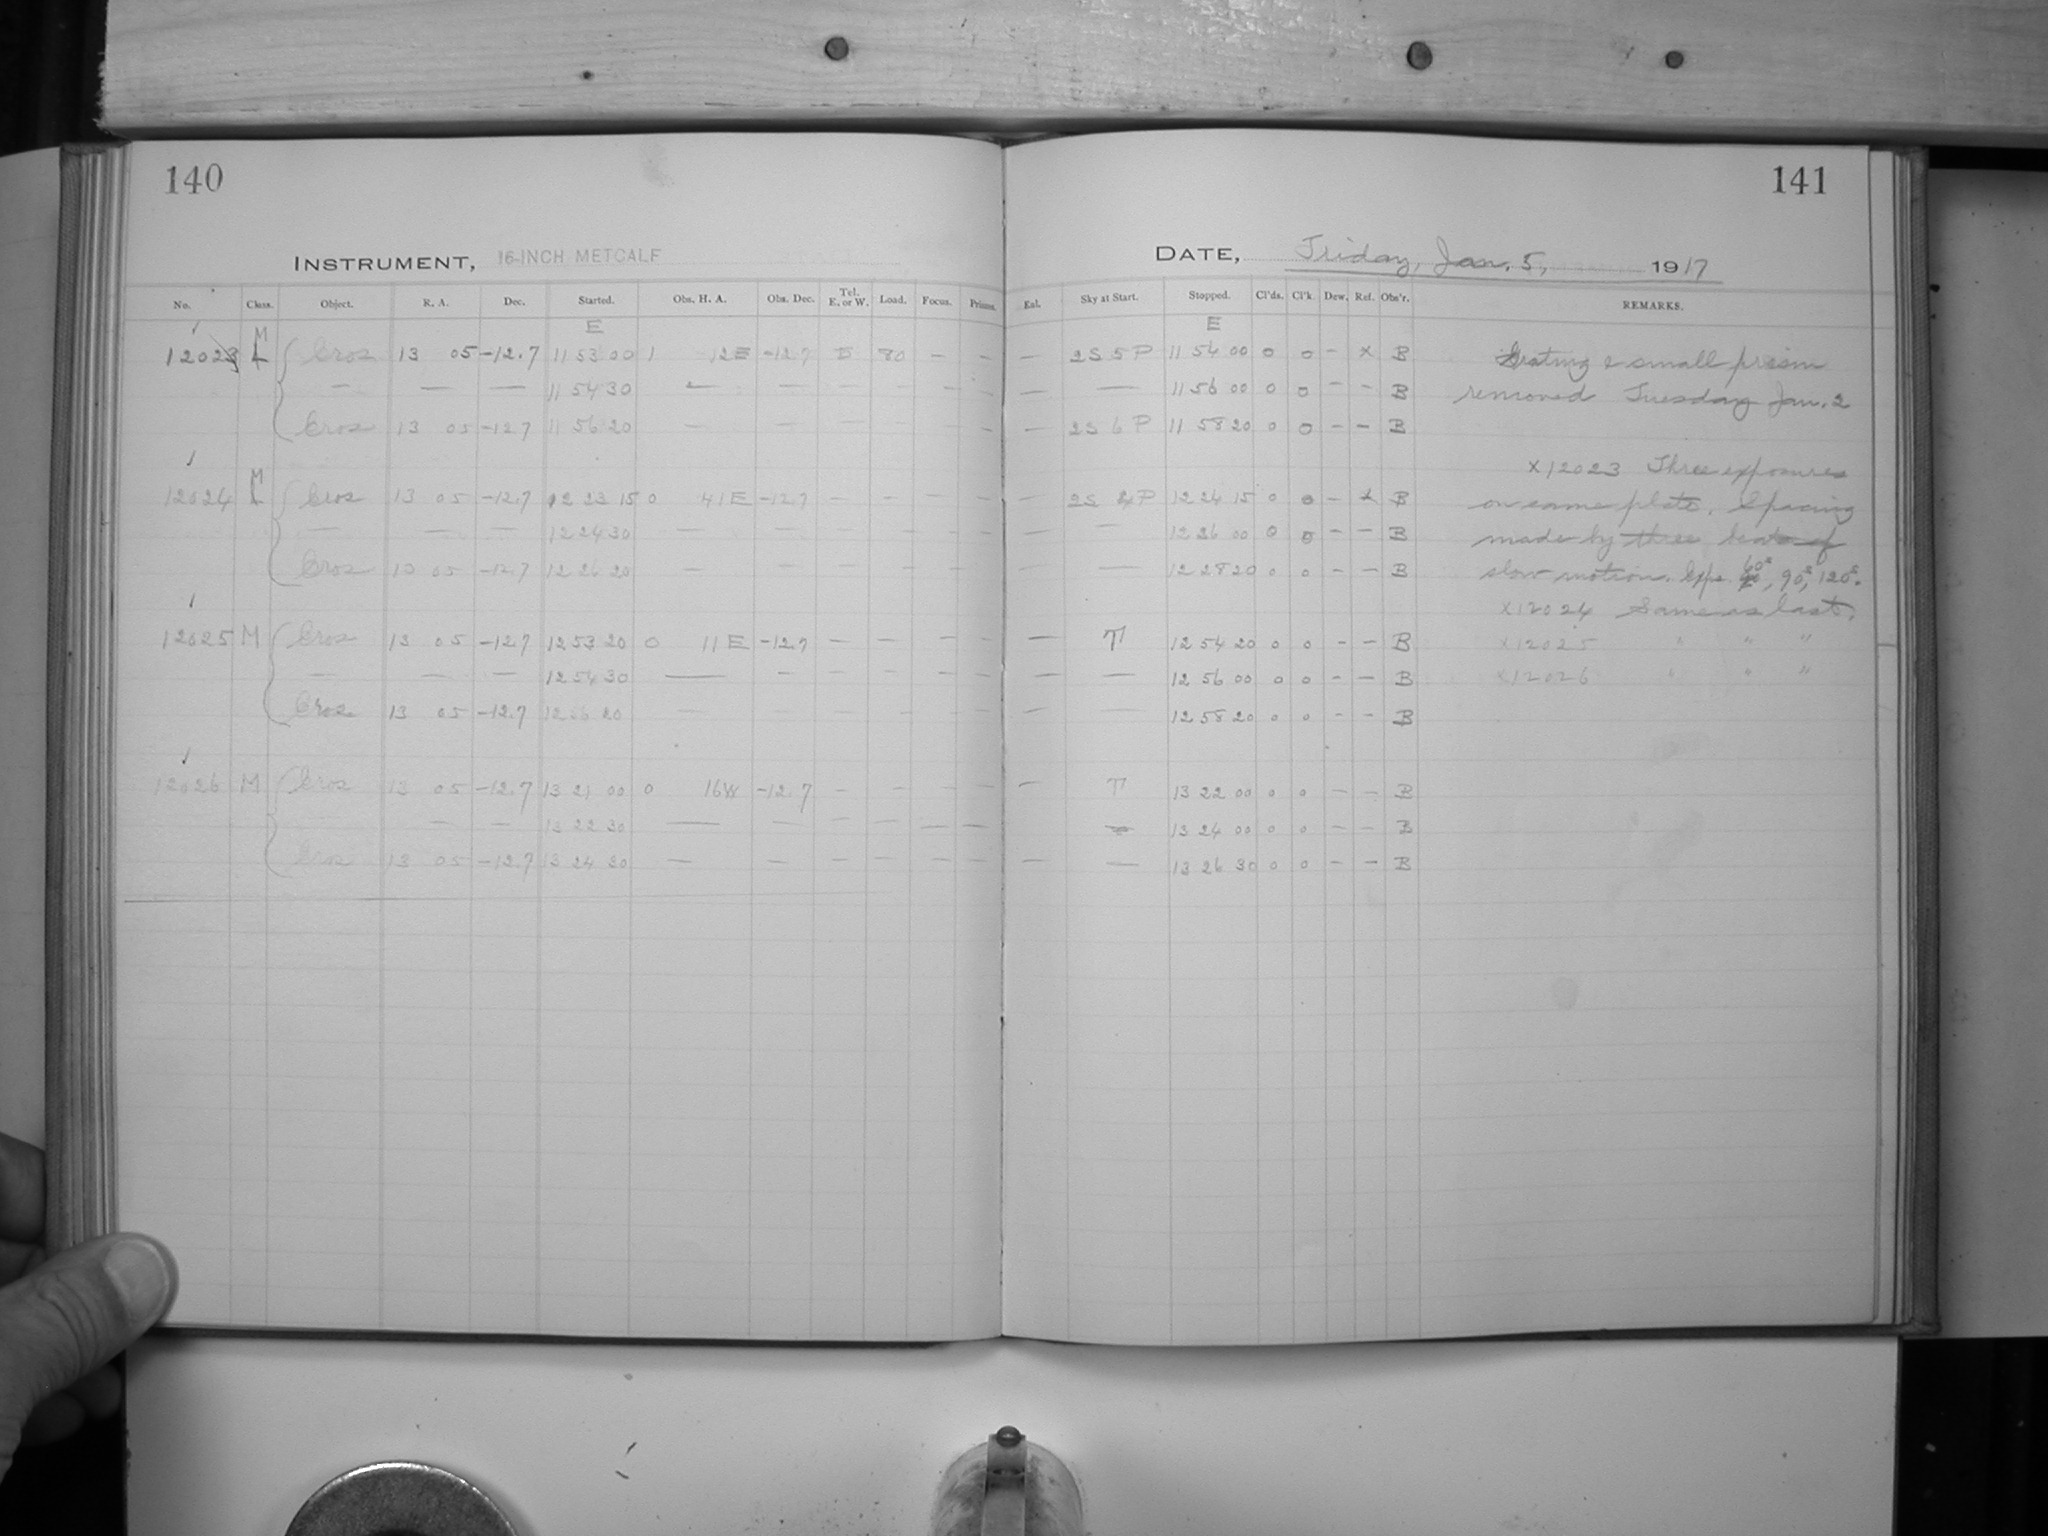 140
INSTRUMENT, 16-INCH METCALF
No. Class. Object. R. A. Dec. Started. Obs. H. A. Obs. Dec. Tel. E. or W. Load. Focus. Prisms.
E
12023 M Eros 13 05 -12.7 11 53 00 1 12 E -12.7 E 80 - -
— — — 11 54 30 — — — — — — —
Eros 13 05 -12.7 11 56 20 — — — — — —
12024 M Eros 13 05 -12.7 12 23 15 0 41 E -12.7 — — — —
— — — 12 24 30 — — — — — —
Eros 13 05 -12.7 12 26 20 — — — — — —
12025 M Eros 13 05 -12.7 12 53 20 0 11 E -12.7 — — — —
— — — 12 54 30 — — — — — —
Eros 13 05 -12.7 12 56 20 — — — — — —
12026 M Eros 13 05 -12.7 13 21 00 0 16 W -12.7 — — — —
— — — 13 22 30 — — — — — —
Eros 13 05 -12.7 13 24 30 — — — — — —
141
DATE, Friday, Jan. 5, 1917
Sky at Start. Stopped. Cl'ds. Cl'k. Dew. Ref. Obs'r. REMARKS.
E
— 2S 5P 11 54 00 0 0 - x B Grating & small prism
— — 11 56 00 0 0 - - B removed Tuesday Jan. 2
— 2S 6P 11 58 20 0 0 - - B
x12023 Three exposures
— 2S 4P 12 24 15 0 0 - x B on same plate. Spacing
— — 12 26 00 0 0 - - B made by three beats of
— — 12 28 20 0 0 - - B slow motion. Exps. 60s, 90s, 120s.
x12024 Same as last.
— T 12 54 20 0 0 - - B x12025 " " "
— — 12 56 00 0 0 - - B x12026 " " "
— — 12 58 20 0 0 - - B
— T 13 22 00 0 0 - - B
— 13 24 00 0 0 - - B
— — 13 26 30 0 0 - - B